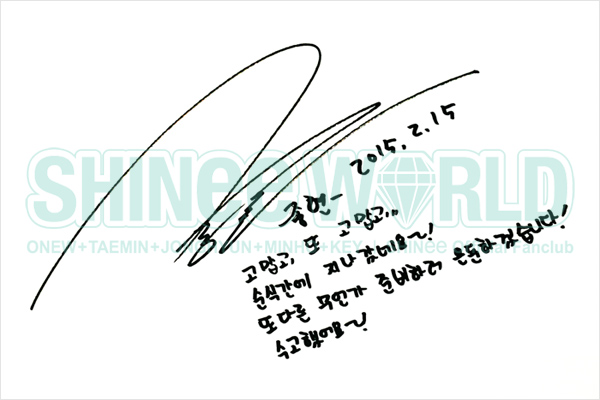 SHINee WORLD
ONEW+TAEMIN+JONGHYUN+MINHO+KEY=SHINee Official Fanclub
종현- 2015. 2. 15
고맙고, 또 고맙고...
순식간에 지나갔네요~!
또다른 무언가 준비하러 은둔하겠습니다!
수고했어요~!